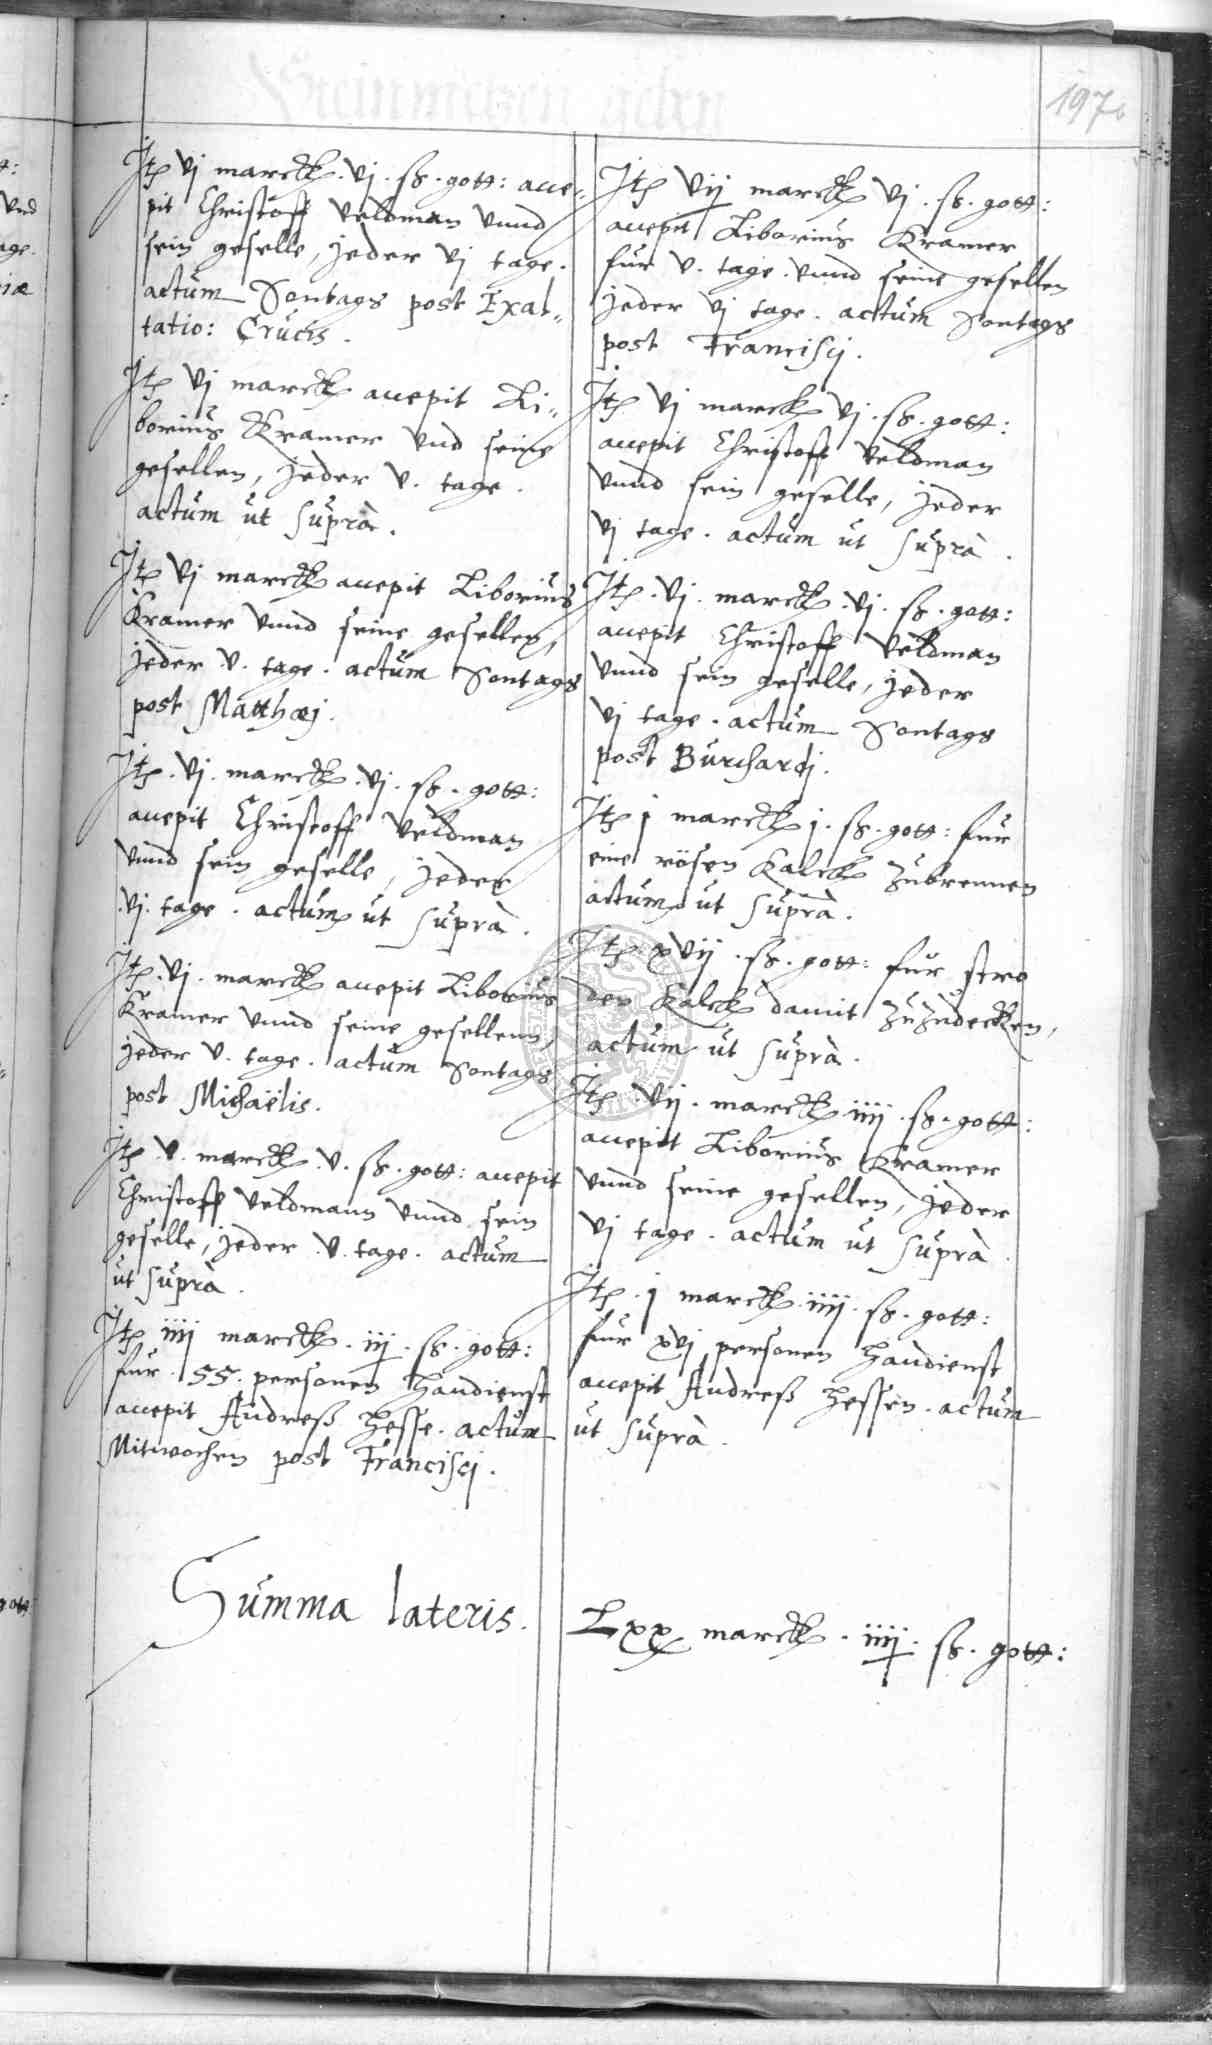 197
Jtem vj marck . vj . ß . gott: acce„
pit Christoff Veldman vnnd
sein geselle, jeder vj tage .
actum Sontags post Exal„
tatio: Crucis .
Jtem vj marck accepit Li„
borius Kramer vnd seine
gesellen, jeder v . tage .
actum ut suprà .
Jtem vj marck accepit Liborius
Kramer vnnd seine gesellen,
jeder v . tage . actum Sontags
post Matthæj .
Jtem . vj . marck . vj . ß . gott:
accepit Christoff Veldman
vnnd sein geselle, jeder
. vj . tage . actum ut suprà .
Jtem . vj . marck accepit Liborius
Kramer vnnd seine gesellenn,
jeder v . tage . actum Sontags
post Michaëlis .
Jtem . v . marck . v . ß . gott: accepit
Christoff Veldmann vnnd sein
geselle, jeder . v . tage . actum
ut suprà .
Jtem iiij marck . iij . ß . gott:
fur . 55 . personen handienst
accepit Andreß Hesse . actum
Mitwochen post Francisci .
Jtem vij marck vj . ß . gott:
accepit Liborius Kramer
fur v . tage . vnnd seine gesellen
jeder vj tage . actum Sontags
post Francisci .
Jtem vj marck vj . ß . gott:
accepit Christoff Veldman
vnnd sein geselle, jeder
vj tage . actum ut suprà .
Jtem . vj . marck . vj . ß . gott:
accepit Christoff Veldman
vnnd sein geselle, jeder
vj tage . actum Sontags
post Burchardj .
Jtem j marck j . ß . gott: fur
eine rösen Kalck zubrennen
actum ut suprà .
Jtem xvij . ß . gott: fur stro
den Kalck damit zuzudecken,
actum ut suprà .
Jtem . vij . marck iiij . ß . gott:
accepit Liborius Kramer
vnnd seine gesellen, jeder
vj tage . actum ut suprà .
Jtem . j marck . iiij . ß . gott:
fur xvj personen handienst
accepit Andreß Hessen . actum
ut suprà .
Summa lateris . Lxx marck . iiij . ß . gott: